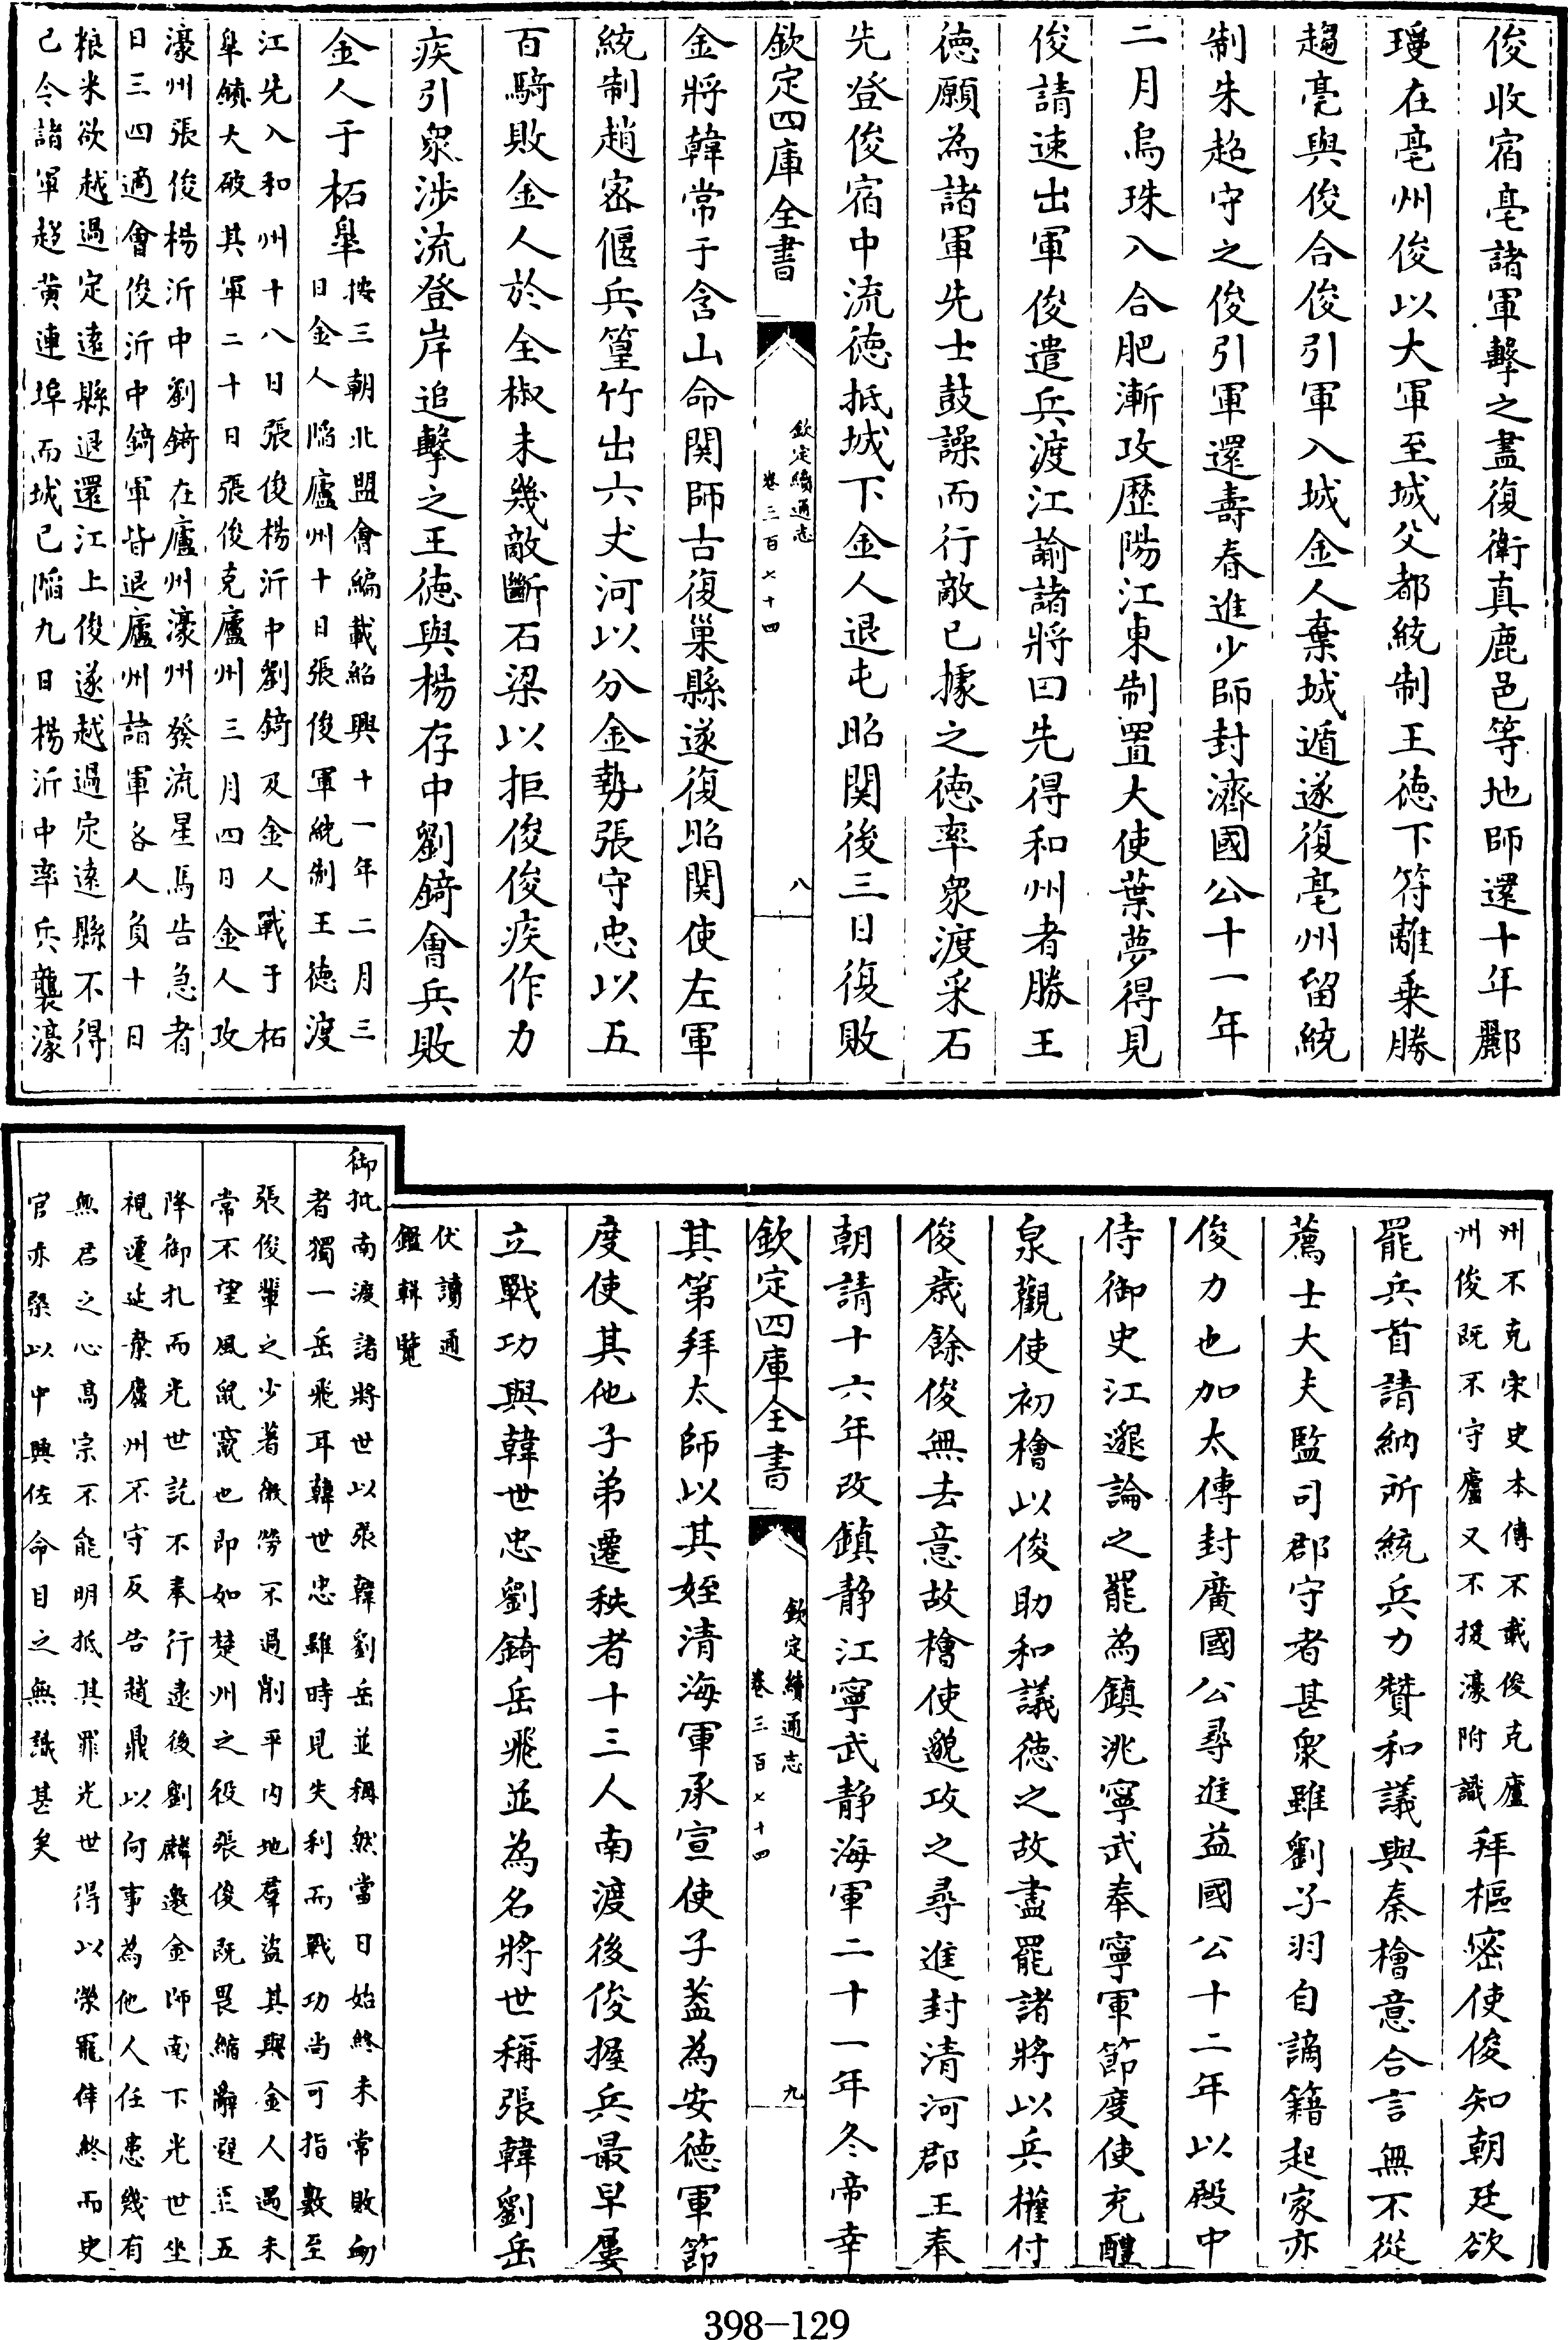 俊收宿亳諸軍擊之盡復衛真鹿邑等地師還十年酈
瓊在亳州俊以大軍至城父都統制王徳下符離乗勝
趨亳與俊合俊引軍入城金人棄城遁遂復亳州留統
制朱超守之俊引軍還壽春進少師封濟國公十一年
二月烏珠入合肥漸攻歴陽江東制置大使葉夢得見
俊請速出軍俊遣兵渡江諭諸將曰先得和州者勝王
徳願為諸軍先士鼓譟而行敵已據之徳率衆渡采石
先登俊宿中流徳抵城下金人退屯昭関後三日復敗
欽定四庫全書
欽定續通志
卷三百七十四
八
金將韓常于含山命関師古復巢縣遂復昭関使左軍
統制趙宻偃兵篁竹出六丈河以分金勢張守忠以五
百騎敗金人於全椒未幾敵斷石梁以拒俊俊疾作力
疾引衆渉流登岸追擊之王徳與楊存中劉錡會兵敗
金人于柘臯
按三朝北盟會編載紹興十一年二月三
日金人陷廬州十日張俊軍統制王徳渡
江先入和州十八日張俊楊沂中劉錡及金人戰于柘
臯鎮大破其軍二十日張俊克廬州三月四日金人攻
濠州張俊楊沂中劉錡在廬州濠州發流星馬告急者
日三四適會俊沂中錡軍皆退廬州諸軍各人負十日
粮米欲越過定遠縣退還江上俊遂越過定遠縣不得
已令諸軍趨黄連埠而城已陷九日楊沂中率兵襲濠
州不克宋史本傳不載俊克廬
州俊既不守廬又不援濠附識
拜樞密使俊知朝廷欲
罷兵首請納所統兵力贊和議與秦檜意合言無不從
薦士大夫監司郡守者甚衆雖劉子羽自謫籍起家亦
俊力也加太傅封廣國公尋進益國公十二年以殿中
侍御史江邈論之罷為鎮洮寧武奉寧軍節度使充醴
泉觀使初檜以俊助和議徳之故盡罷諸將以兵權付
俊歳餘俊無去意故檜使邈攻之尋進封清河郡王奉
朝請十六年改鎮静江寧武静海軍二十一年冬帝幸
欽定四庫全書
欽定續通志
卷三百七十四
九
其第拜太師以其姪清海軍承宣使子葢為安徳軍節
度使其他子弟遷秩者十三人南渡後俊握兵最早屢
立戰功與韓世忠劉錡岳飛並為名將世稱張韓劉岳
伏讀通
鑑輯覽
御批南渡諸將世以張韓劉岳並稱然當日始終未常敗衂
者獨一岳飛耳韓世忠雖時見失利而戰功尚可指數至
張俊輩之少著微勞不過削平内地羣盜其與金人遇未
常不望風鼠竄也即如楚州之役張俊既畏縮辭避至五
降御札而光世訖不奉行逮後劉麟邀金師南下光世坐
視遷延棄廬州不守反告趙鼎以何事為他人任患幾有
無君之心髙宗不能明抵其罪光世得以榮罷倖終而史
官亦槩以中興佐命目之無識甚矣
398-129